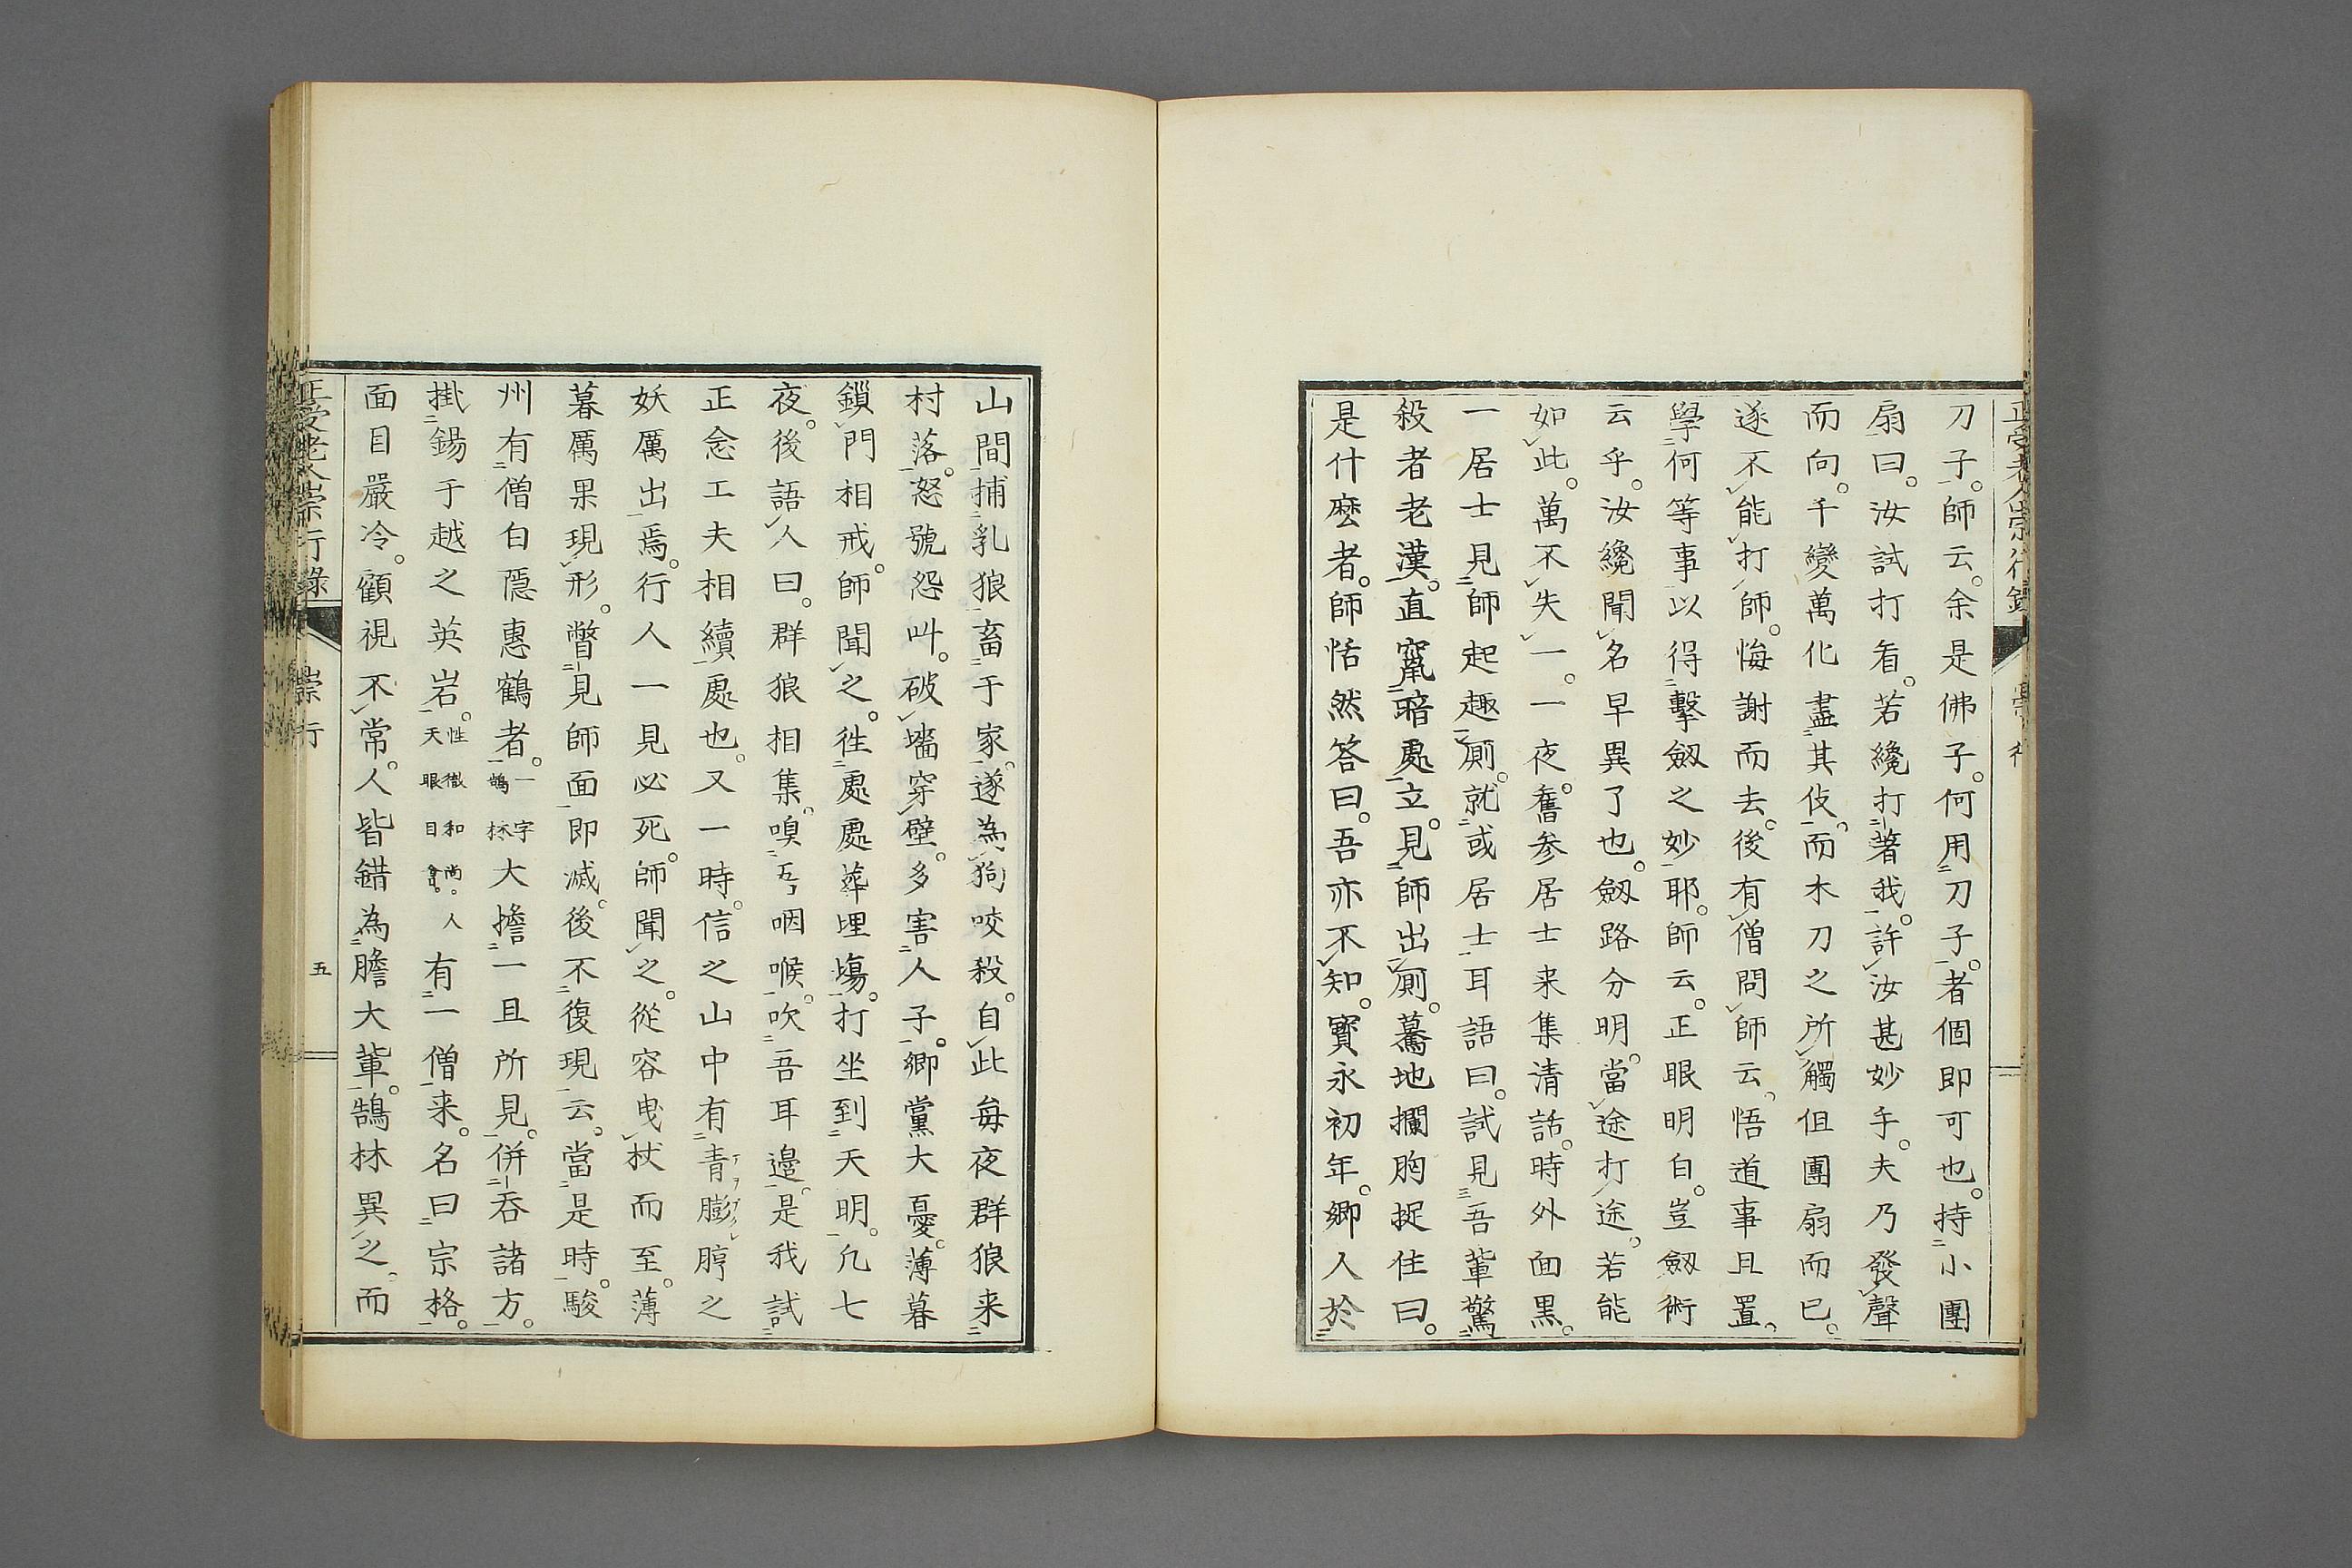 刀子。師云。余是佛子。何用刀子。者個即可也。持小團
扇曰。汝試打看。若纔打著我。許汝甚妙手。夫乃發聲
而向。千變萬化盡其伎。而木刀之所觸但團扇而已。
遂不能打師。悔謝而去。後有僧問師云。悟道事且置。
學何等事以得擊劔之妙耶。師云。正眼明白。豈劔術
云乎。汝纔聞名早異了也。劔路分明。當途打途。若能
如此。萬不失一。一夜。舊参居士来集清話。時外面黒。
一居士見師起趣廁。就或居士耳語曰。試見吾輩驚
殺者老漢。直竄暗處立。見師出廁。驀地攔胸捉住曰。
是什麼者。師恬然答曰。吾亦不知。寳永初年。鄉人於
正受老人崇行録
崇行
山間捕乳狼畜于家。遂為狗咬殺。自此每夜群狼来
村落。怒號怨叫。破墻穿壁。多害人子。鄉黨大憂。薄暮
鎖門相戒。師聞之。徃處處葬埋塲。打坐到天明。凢七
夜。後語人曰。群狼相集。嗅吾咽喉。吹吾耳邉。是我試
正念工夫相續處也。又一時。信之山中有青膨脝之
妖厲出焉。行人一見必死。師聞之。從容曳杖而至。薄
暮厲果現形。瞥見師面即滅。後不復現云。當是時。駿
州有僧白隱惠鶴者。一字鵠林大擔一且所見。併吞諸方。
掛錫于越之英岩。性徹和尚。人天眼目會。有一僧来。名曰宗格。
面目嚴冷。顧視不常。人皆錯為膽大輩。鵠林異之。而
正受老人崇行錄
崇行
五